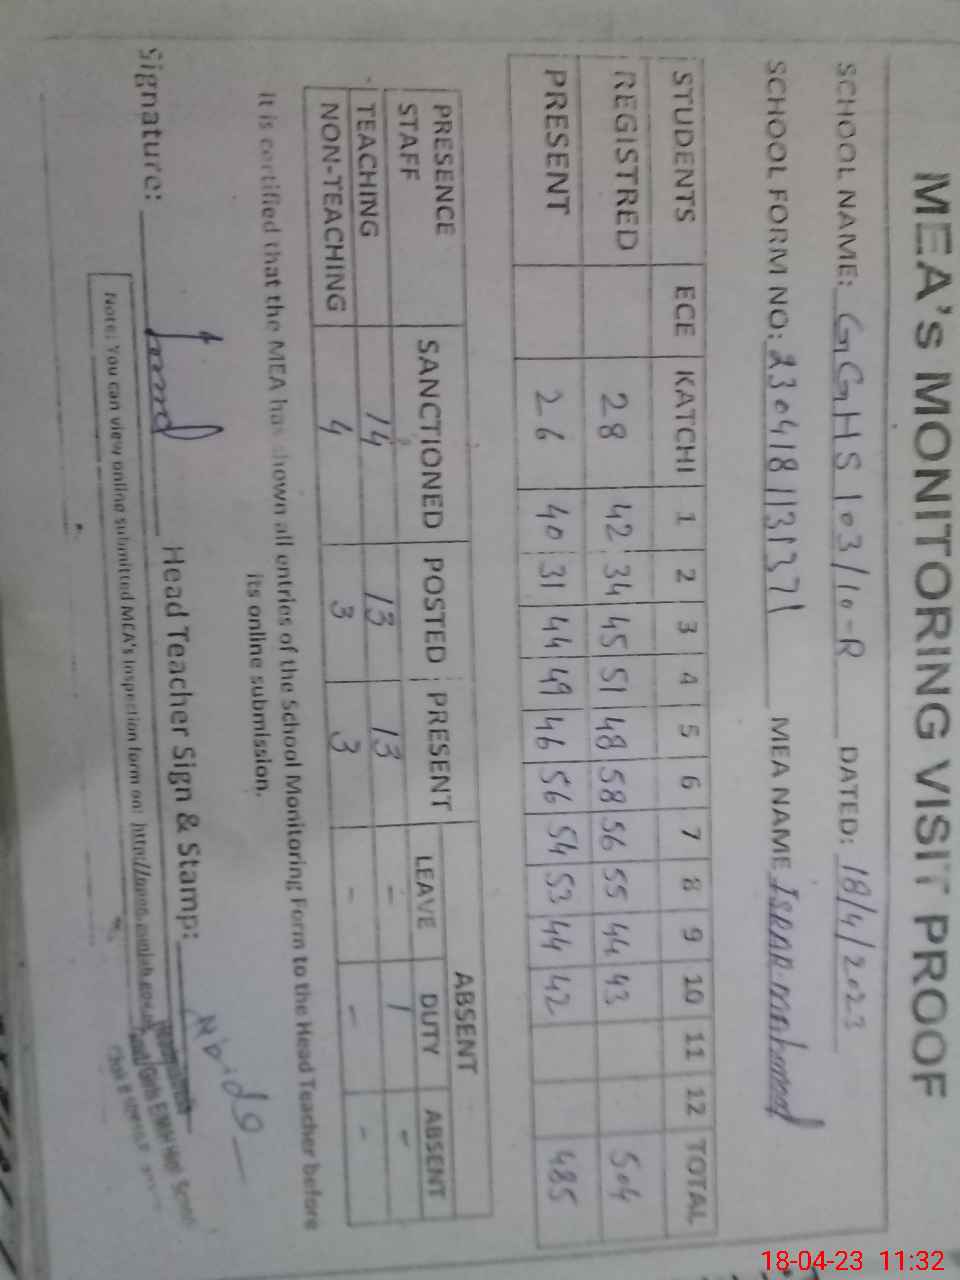 MEA's MONITORING VISIT PROOF
SCHOOL NAME: GGHS 103/10-R DATED: 18/4/2023
SCHOOL FORM NO: 230418113137 MEA NAME
STUDENTS ECE KATCHI 1 2 3 4 5 6 7 8 9 10 11 12 TOTAL
REGISTRED 28 42 34 45 51 48 58 56 55 44 43 504
PRESENT 26 40 31 44 49 46 56 54 53 44 42 485
PRESENCE SANCTIONED POSTED PRESENT ABSENT
STAFF LEAVE DUTY ABSENT
TEACHING 14 13 13 - 1 -
NON-TEACHING 4 3 3 - - -
It is certified that the MEA has shown all entries of the School Monitoring Form to the Head Teacher before
its online submission.
Signature: Head Teacher Sign & Stamp:
Note: You can view online submitted MEA's Inspection form on:
18-04-23 11:32